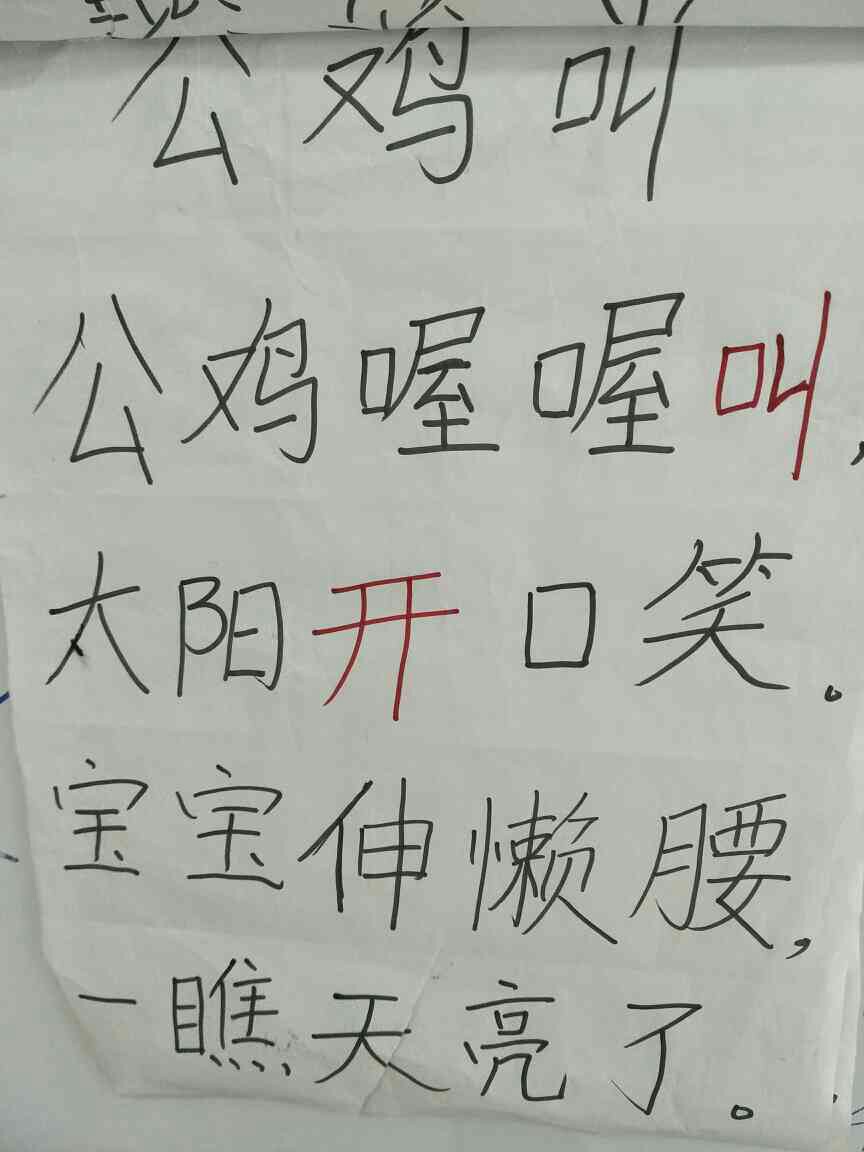 公鸡叫
公鸡喔喔叫,
太阳开口笑。
宝宝伸懒腰,
一瞧天亮了。